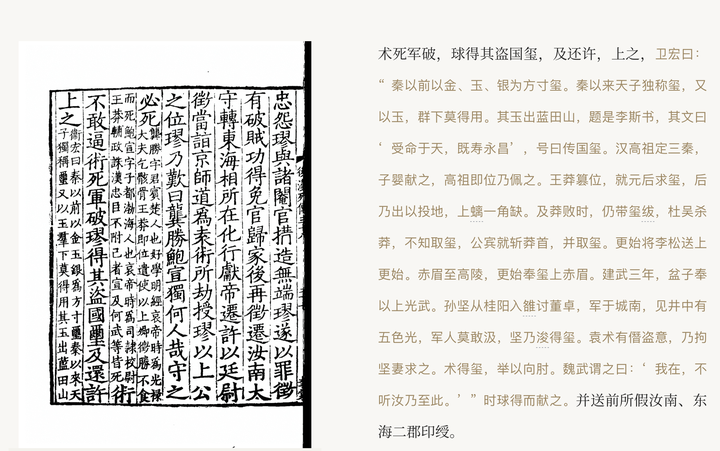 忠怨璆與諸閹官搆造無端璆遂以罪徵
有破賊功得免官歸家後再徵遷汝南太
守轉東海相所在化行獻帝遷許以廷尉
徵當詣京師道爲袁術所劫授璆以上公
之位璆乃歎曰龔勝鮑宣獨何人哉守之
必死龔勝字君賓楚人也好學明經哀帝時爲光祿
大夫乞骸骨王莽即位遣使以上卿徵勝不食
而死鮑宣字子都渤海人也哀帝時爲司隸校尉
王莽輔政誅漢忠直不附己者宣及何武等皆死術
不敢逼術死軍破璆得其盜國璽及還許
上之衞宏曰秦以前以金玉銀爲方寸璽秦以來天
子獨稱璽又以玉羣下莫得用其玉出藍田山
术死军破，球得其盗国玺，及还许，上之，卫宏曰：
“秦以前以金、玉、银为方寸玺。秦以来天子独称玺，又
以玉，群下莫得用。其玉出蓝田山，题是李斯书，其文曰
‘受命于天，既寿永昌’，号曰传国玺。汉高祖定三秦，
子婴献之，高祖即位乃佩之。王莽篡位，就元后求玺，后
乃出以投地，上螭一角缺。及莽败时，仍带玺绂，杜吴杀
莽，不知取玺，公宾就斩莽首，并取玺。更始将李松送上
更始。赤眉至高陵，更始奉玺上赤眉。建武三年，盆子奉
以上光武。孙坚从桂阳入雒讨董卓，军于城南，见井中有
五色光，军人莫敢汲，坚乃浚得玺。袁术有僭盗意，乃拘
坚妻求之。术得玺，举以向肘。魏武谓之曰：‘我在，不
听汝乃至此。’”时球得而献之。并送前所假汝南、东
海二郡印绶。